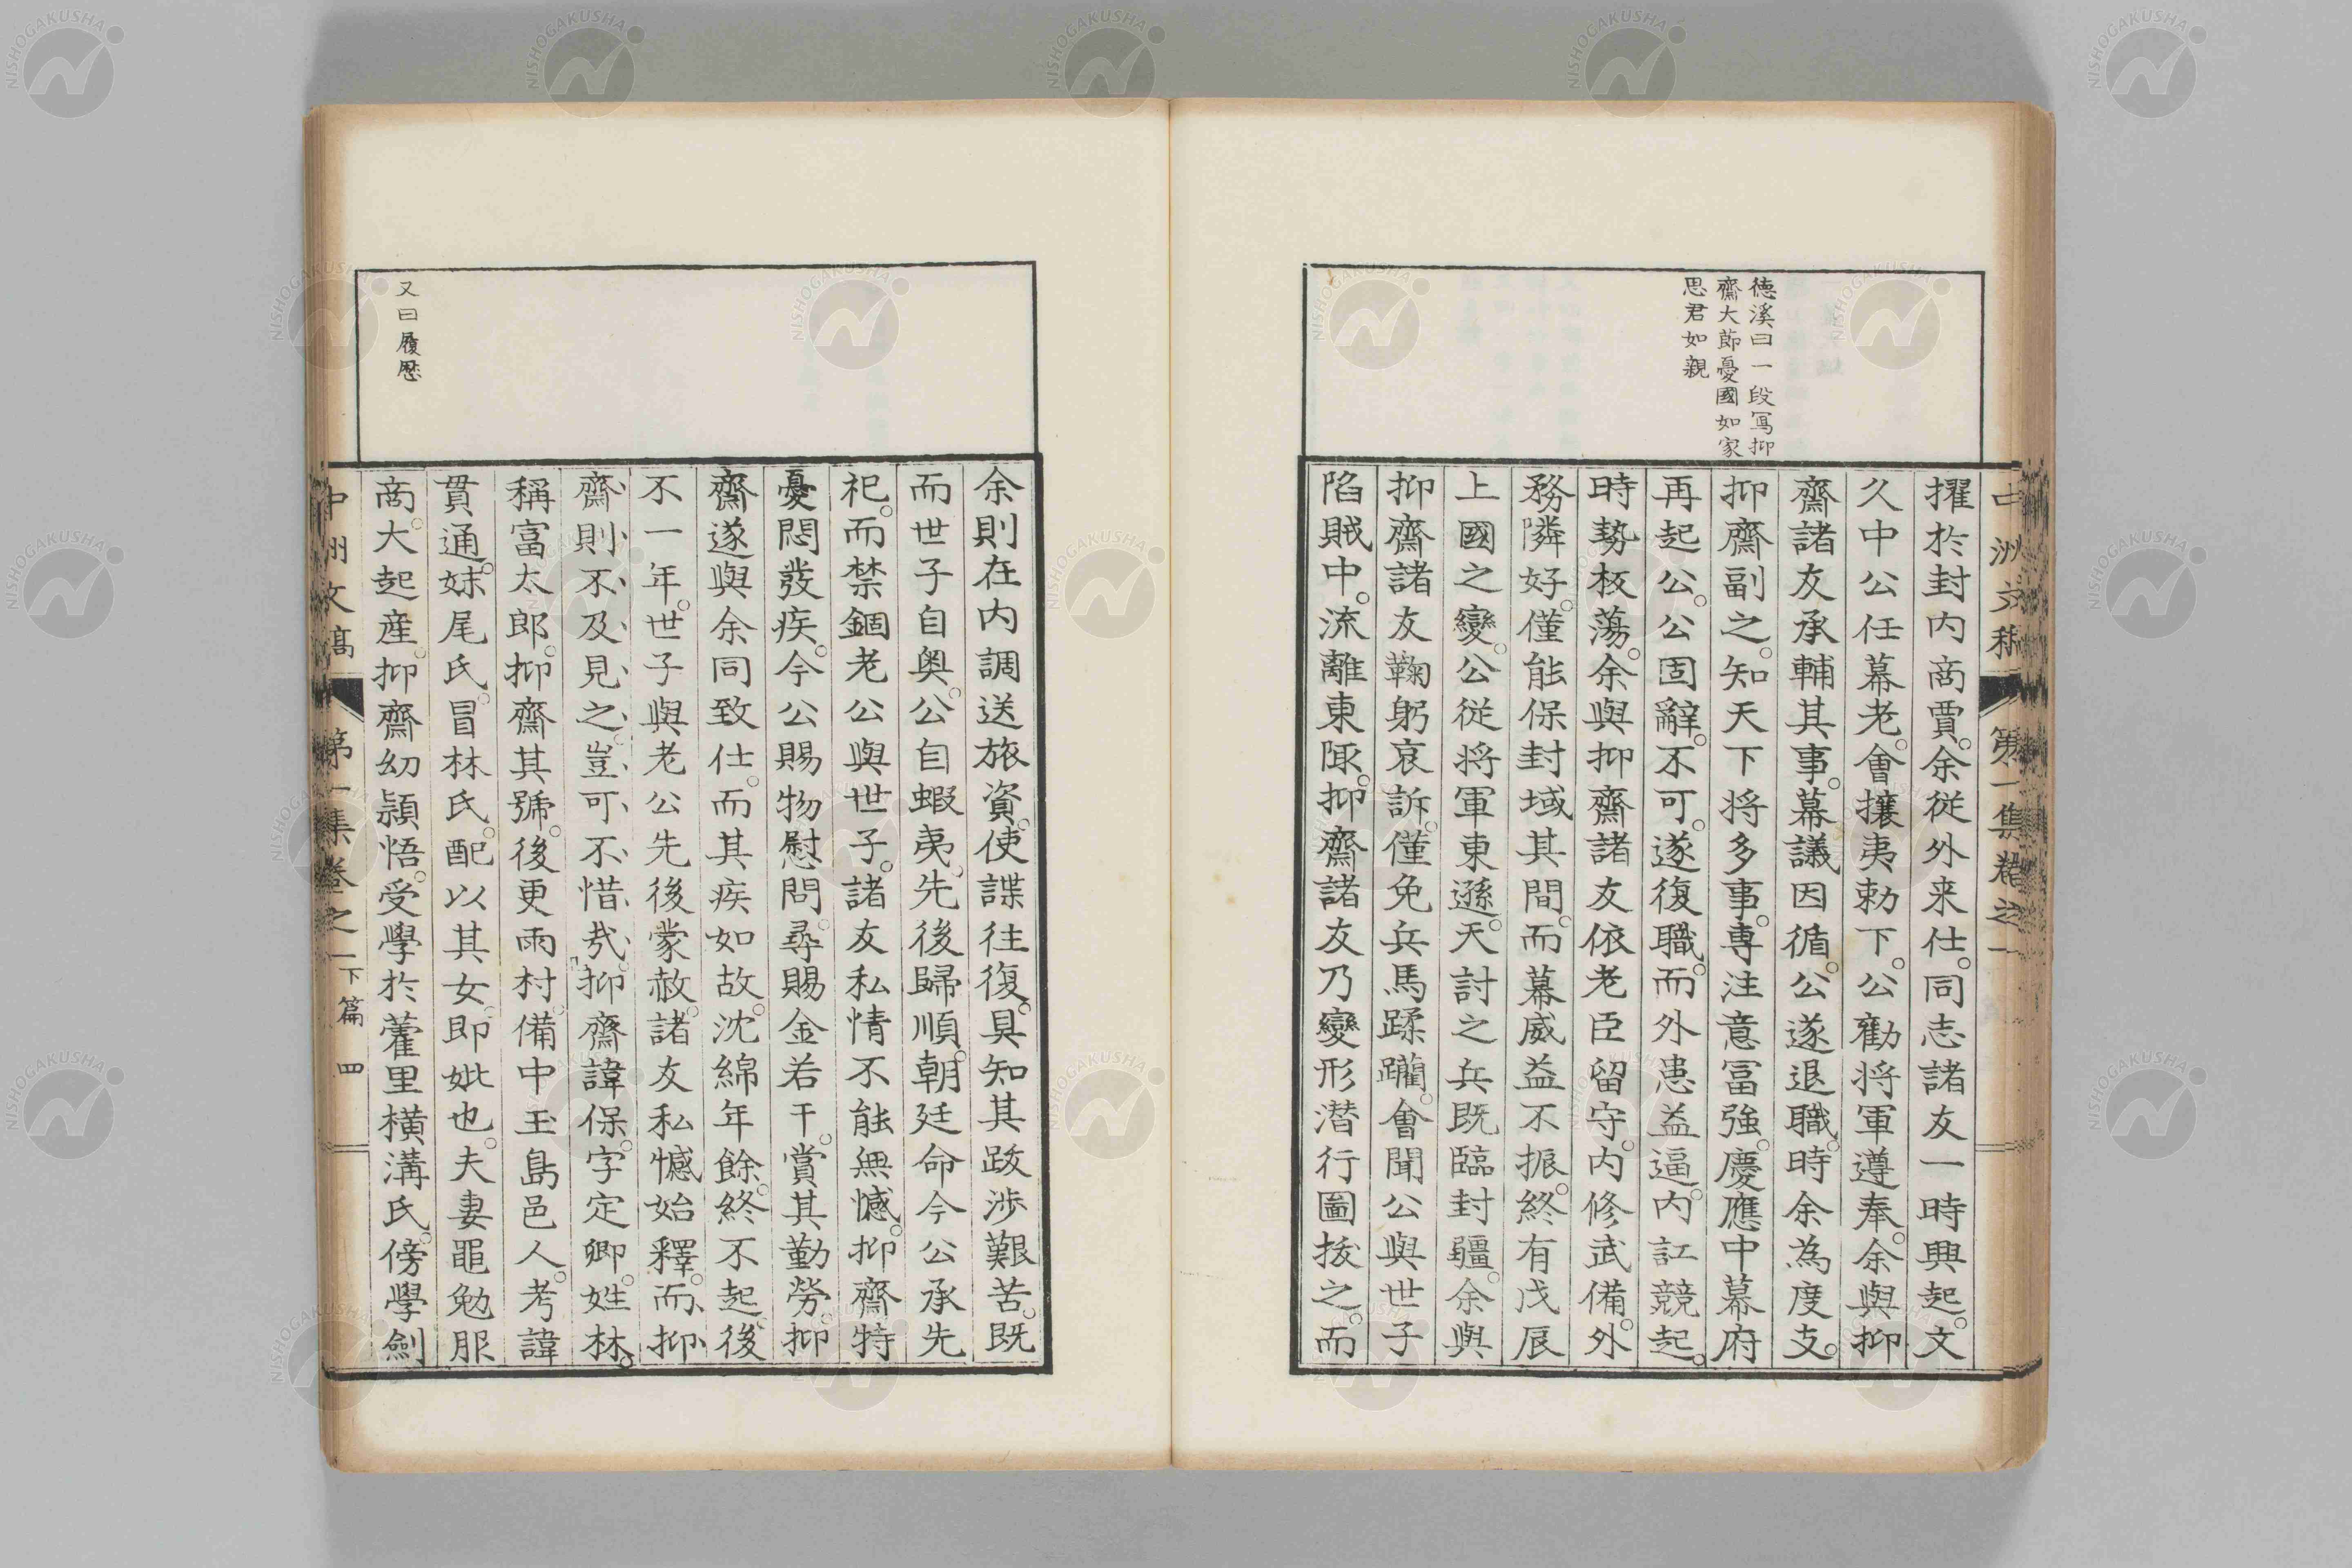 中洲文稿 第一集卷之一
德溪曰一段寫抑
齋大節憂國如家
思君如親
擢於封內商賈。余從外来仕。同志諸友一時興起。文
久中公任幕老。會攘夷勅下。公勸将軍遵奉。余與抑
齋諸友承輔其事。幕議因循。公遂退職。時余為度支。
抑齋副之。知天下将多事。專注意冨強。慶應中幕府
再起公。公固辭。不可。遂復職。而外患益逼。內訌競起。
時勢板蕩。余與抑齋諸友依老臣留守。內修武備。外
務隣好。僅能保封域其間。而幕威益不振。終有戊辰
上國之變。公従将軍東遜。天討之兵既臨封疆。余與
抑齋諸友鞠躬哀訴。僅免兵馬蹂躪。會聞公與世子
陷賊中。流離東陬。抑齋諸友乃變形潛行圖拔之。而
余則在內調送旅資。使諜往復。具知其跋涉艱苦。既
而世子自奥。公自蝦夷。先後歸順。朝廷命今公承先
祀。而禁錮老公與世子。諸友私情不能無憾。抑齋特
憂悶發疾。今公賜物慰問。尋賜金若干。賞其勤勞。抑
齋遂與余同致仕。而其疾如故。沈綿年餘。終不起。後
不一年。世子與老公先後蒙赦。諸友私憾始釋。而抑
齋則不及見之。豈可不惜㢤。抑齋諱保。字定卿。姓林。
稱富太郎。抑齋其號。後更雨村。備中玉島邑人。考諱
貫通。妣尾氏。冒林氏。配以其女。即妣也。夫妻黽勉服
商。大起産。抑齋幼頴悟。受學於藿里橫溝氏。傍學劍
又曰履歷
中洲文稿 第一集卷之一 下篇 四